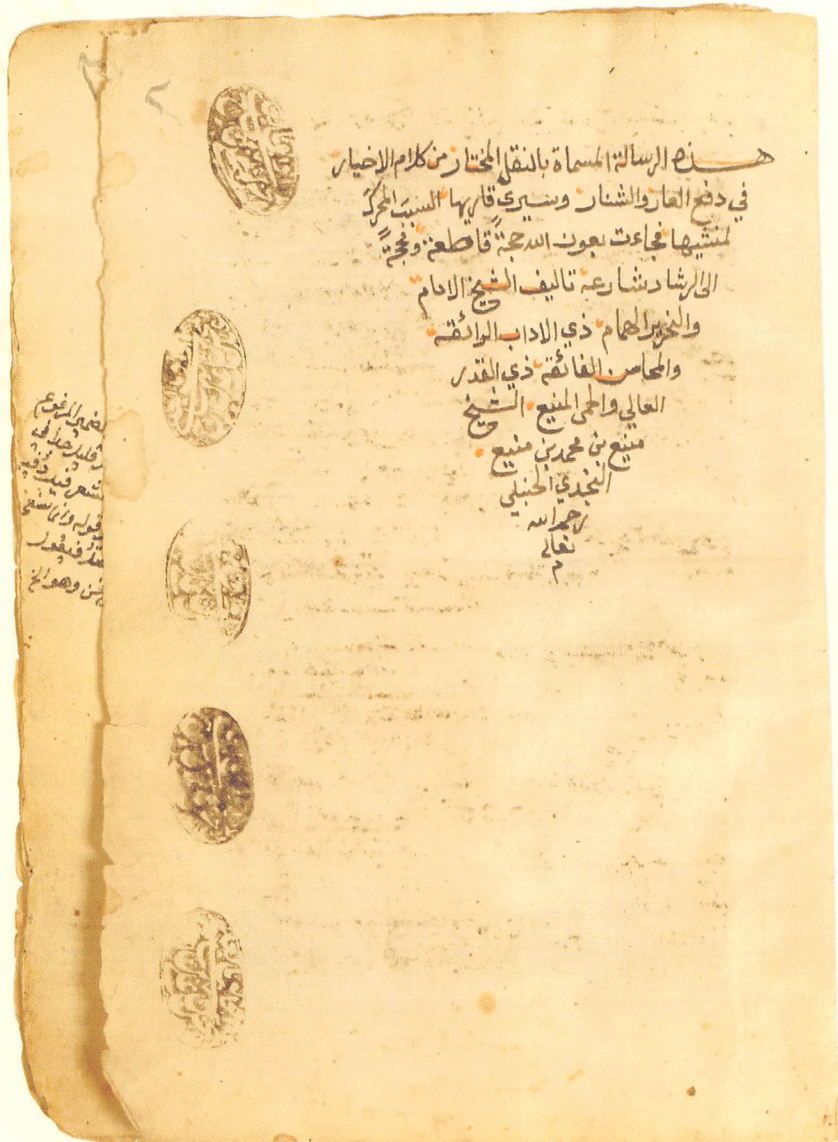 هذه الرسالة المسماة بالنقل المختار من كلام الاخيار
في دفع العار والشنار وسيرى قاريها السبب المحرك
لمنشيها فجاءت بعون الله حجةً قاطعة ومحجةً
الى الرشاد شارعة تاليف الشيخ الامام
والنحرير الهمام ذي الاداب الرائقة
والمحاسن الفائقة ذي القدر
العالي والحمى المنيع الشيخ
منيع بن محمد بن منيع
النجدي الحنبلي
رحمه الله
تعالى
م
٢
المرفوع
قليل جدا في
قوله وانما
فيقول
وهو الخ